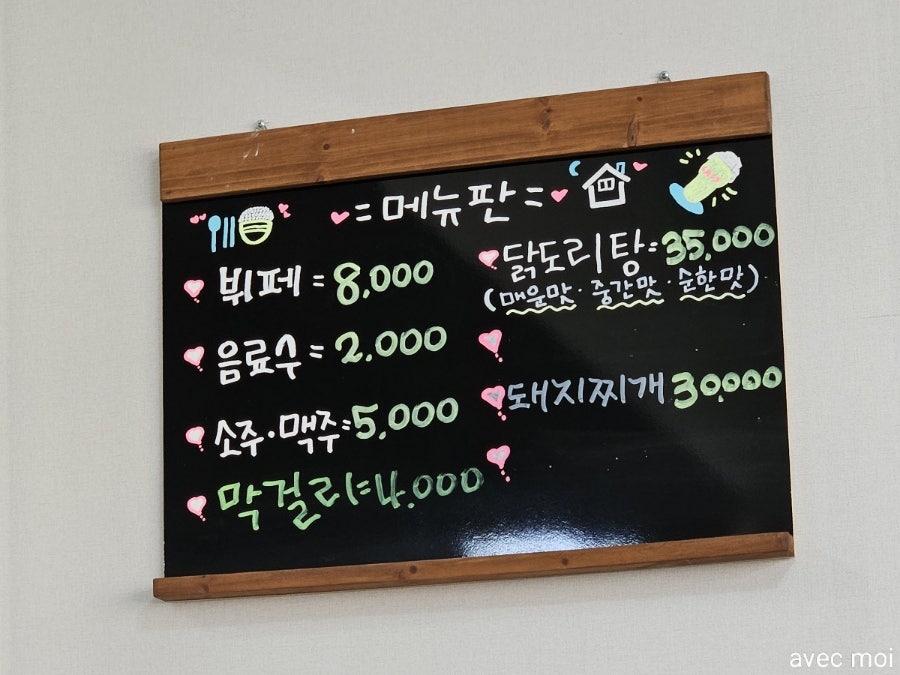 = 메뉴판 =
뷔페 = 8,000
음료수 = 2.000
소주·맥주=5,000
막걸리=4.000
닭도리탕=35,000
(매운맛·중간맛·순한맛)
돼지찌개 30,000
avec moi